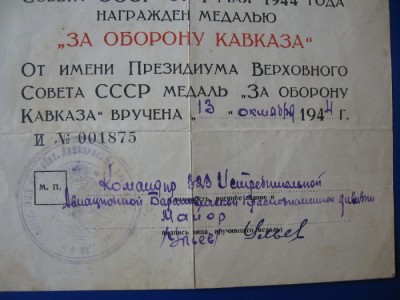 СОВЕТА СССР ОТ 1 МАЯ 1944 ГОДА
НАГРАЖДЕН МЕДАЛЬЮ
„ЗА ОБОРОНУ КАВКАЗА“
ОТ ИМЕНИ ПРЕЗИДИУМА ВЕРХОВНОГО
СОВЕТА СССР МЕДАЛЬ „ЗА ОБОРОНУ
КАВКАЗА“ ВРУЧЕНА „13“ октября 1944 Г.
И № 001875
М. П.
Командир Истребительной
Авиационной Краснознаменной дивизии
Майор
подпись лица, вручившего медаль